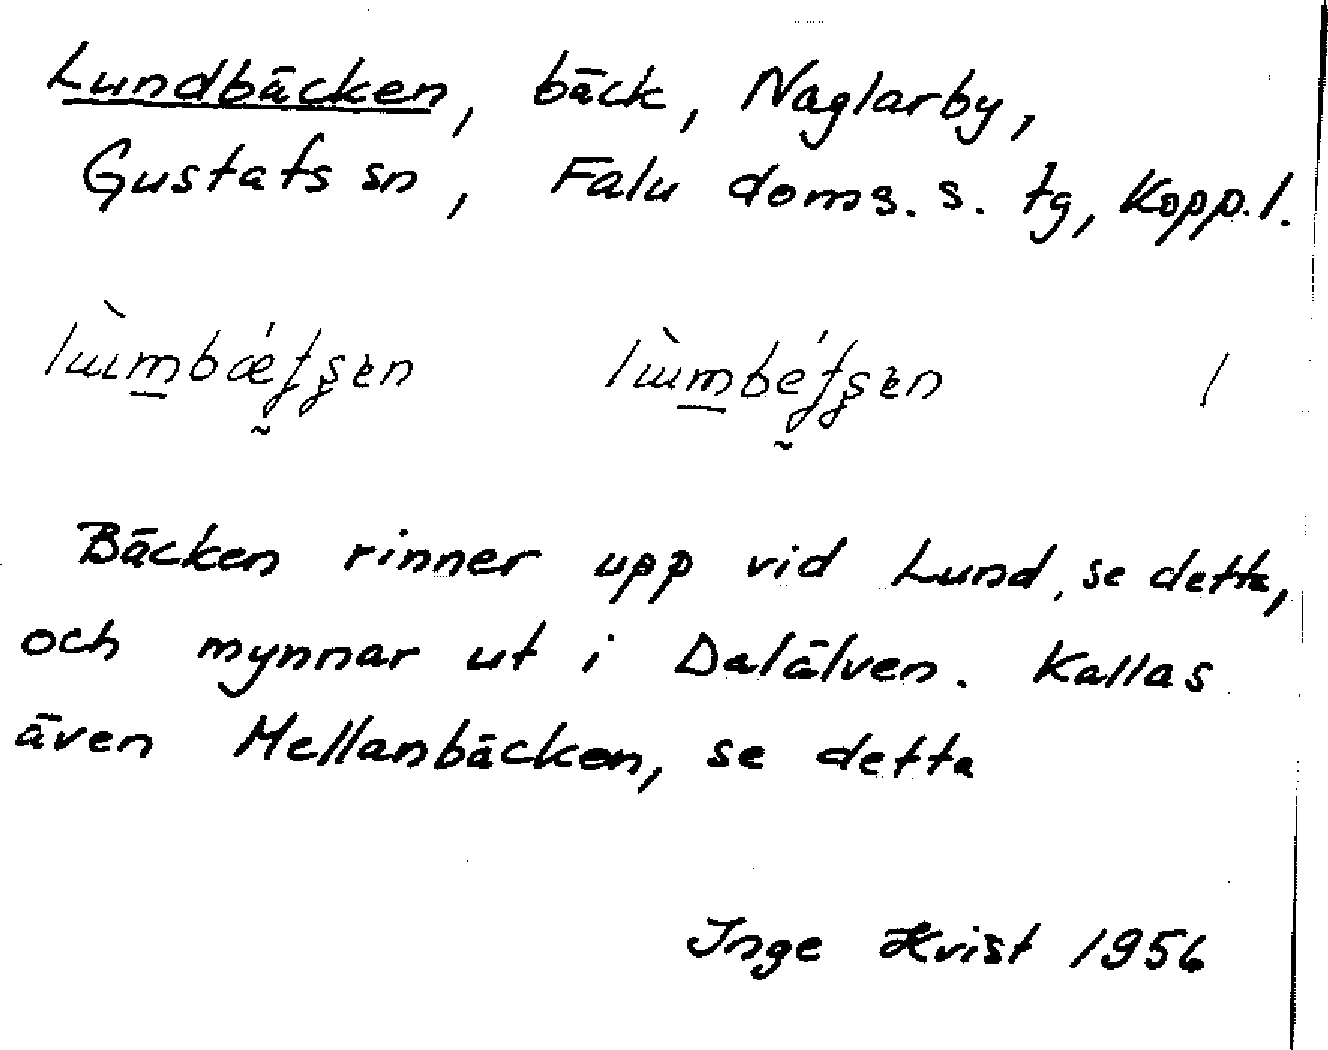 Lundbäcken, bäck, Naglarby,
Gustafs sn, Falu doms. s. tg, Kopp.l.
Bäcken rinner upp vid Lund, se detta,
och mynnar ut i Dalälven. Kallas
även Mellanbäcken, se detta
Inge Kvist 1956